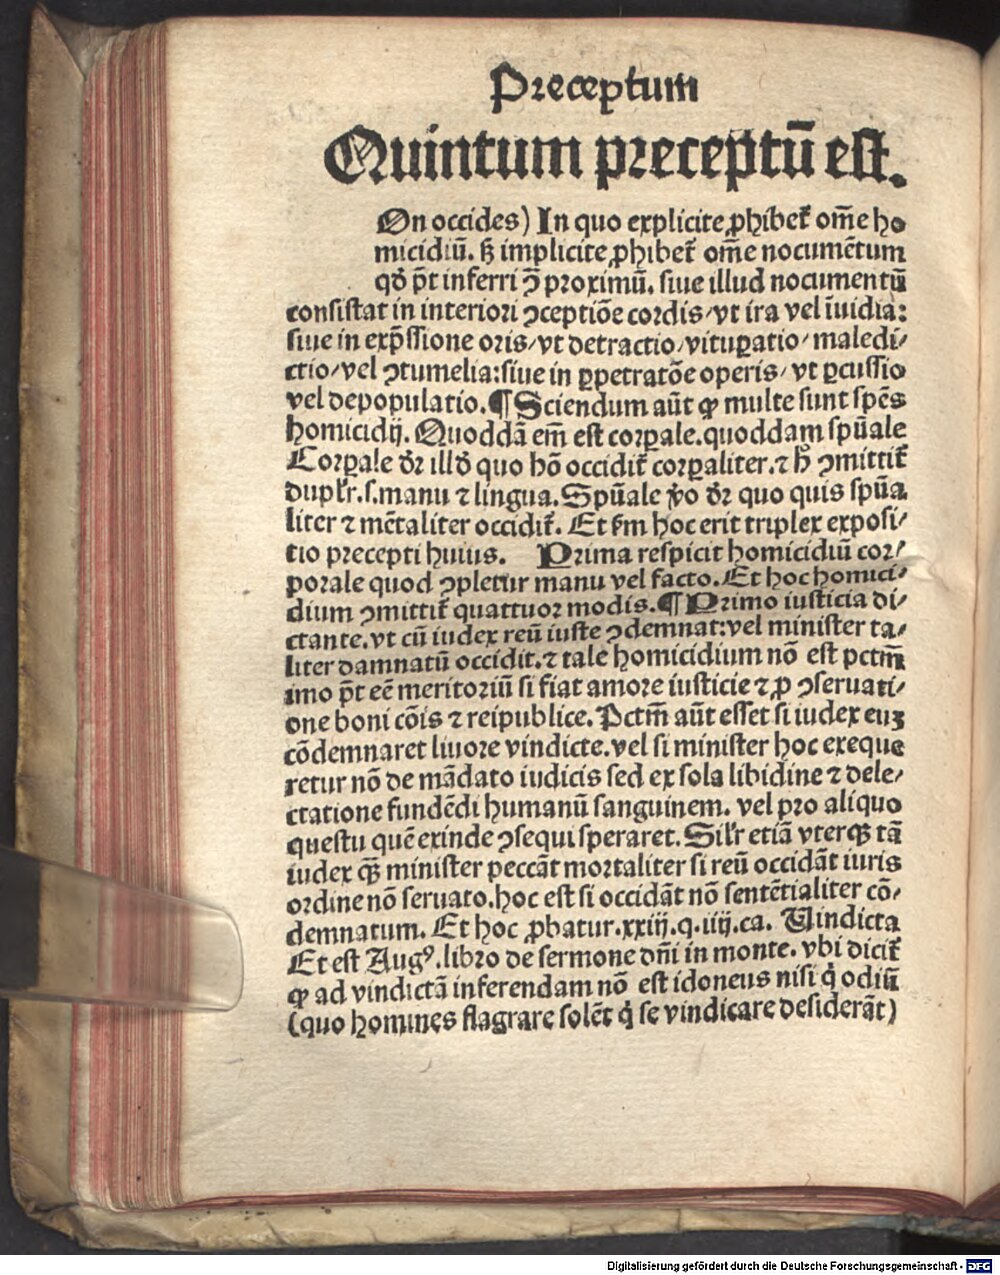 Preceptum
Quintum preceptū est.
On occides) In quo explicite ꝓhibet̉ om̄e ho
micidiū. ß implicite ꝓhibet̉ om̄e nocumētum
qd̓ pt̄ inferri ꝯ proximū. siue illud nocumentū
consistat in interiori ꝯceptiōe cordis/vt ira vel īuidia:
siue in exp̄ssione oris/vt detractio/vituꝑatio/maledi/
ctio/vel ꝯtumelia:siue in ꝑpetratōe operis/vt ꝑcussio
vel depopulatio.¶Sciendum aūt ꝙ multe sunt spēs
homicidij. Quoddā em̄ est corꝑale.quoddam spūale
Corꝑale dr̄ illd̓ quo hō occidit̉ corꝑaliter.⁊ h̄ ꝯmittit̉
duplr̉.s.manu ⁊ lingua. Spūale v̓o dr̄ quo quis spūa
liter ⁊ mētaliter occidit̉. Et ẜm hoc erit triplex exposi/
tio precepti huius. Prima respicit homicidiū cor/
porale quod ꝯpletur manu vel facto. Et hoc homici/
dium ꝯmittit̉ quattuor modis.¶Primo iusticia di/
ctante.vt cū iudex reū iuste ꝯdemnat:vel minister ta/
liter damnatū occidit.⁊ tale homicidium nō est pctm̄
imo pt̄ eē meritoriū si fiat amore iusticie ⁊ ꝓ ꝯseruati/
one boni cōis ⁊ reipublice. Pctm̄ aūt esset si iudex euꝫ
cōdemnaret liuore vindicte.vel si minister hoc exeque
retur nō de mādato iudicis sed ex sola libidine ⁊ dele/
ctatione fundēdi humanū sanguinem. vel pro aliquo
questu quē exinde ꝯsequi speraret. Silr̉ etiā vterqꝫ tā
iudex qꝫ̄ minister peccāt mortaliter si reū occidāt iuris
ordine nō seruato.hoc est si occidāt nō sentētialiter cō/
demnatum. Et hoc ꝓbatur.xxiij.q.iiij.ca. Vindicta
Et est Augꝰ.libro de sermone dn̄i in monte. vbi dicit̉
ꝙ ad vindictā inferendam nō est idoneus nisi q̇ odiū
(quo homines flagrare solēt q̇ se vindicare desiderāt)
Digitalisierung gefördert durch die Deutsche Forschungsgemeinschaft - DFG